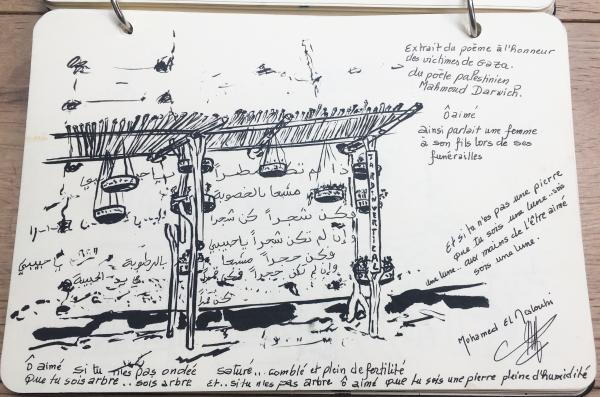 Extrait du poème à l'honneur
des victimes de Gaza.
du poète palestinien
Mahmoud Darwich.
Ô aimé
ainsi parlait une femme
à son fils lors de ses
funérailles
إن لم تكن مطراً يا حبيبي
مشبعا بالخصوبة
فكن شجراً كن شجرا
إن لم تكن شجراً يا حبيبي
فكن حجراً مشبعا
بالرطوبة
وإن لم تكن حجراً
فكن قمرا
كن
JARDIN VERTICAL
Et si tu n'es pas une pierre
que tu sois une lune.. sois
une lune.. aux mains de l'être aimé
sois une lune.
Mohamed El
Ô aimé si tu n'es pas ondée saturé.. comblé et plein de fertilité
que tu sois arbre.. sois arbre et.. si tu n'es pas arbre ô aimé que tu sois une pierre pleine d'humidité